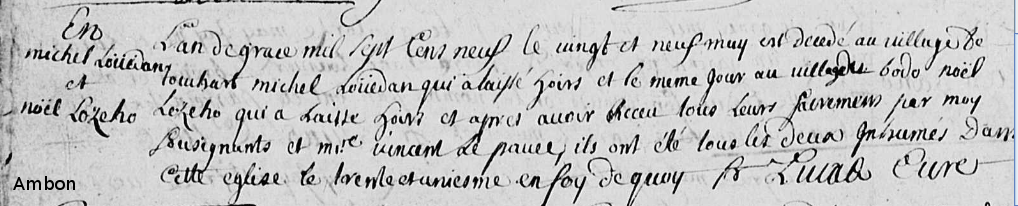 En
michel Loüedan
et
noël Lozeho
L'an de grace mil sept Cens neuf le vingt et neuf may est decedé au village de
michel Loüedan qui a laisse hoirs et le meme jour au village de bodo noël
Lozeho qui a Laisse hoirs et apres avoir Receu tous leurs sacremens par moy
sousignants et mire vincent Le pauce, ils ont été tous les deux Inhumés Dans
Cette eglise le trente et uniesme en foy de quoy Lucas Cure
Ambon